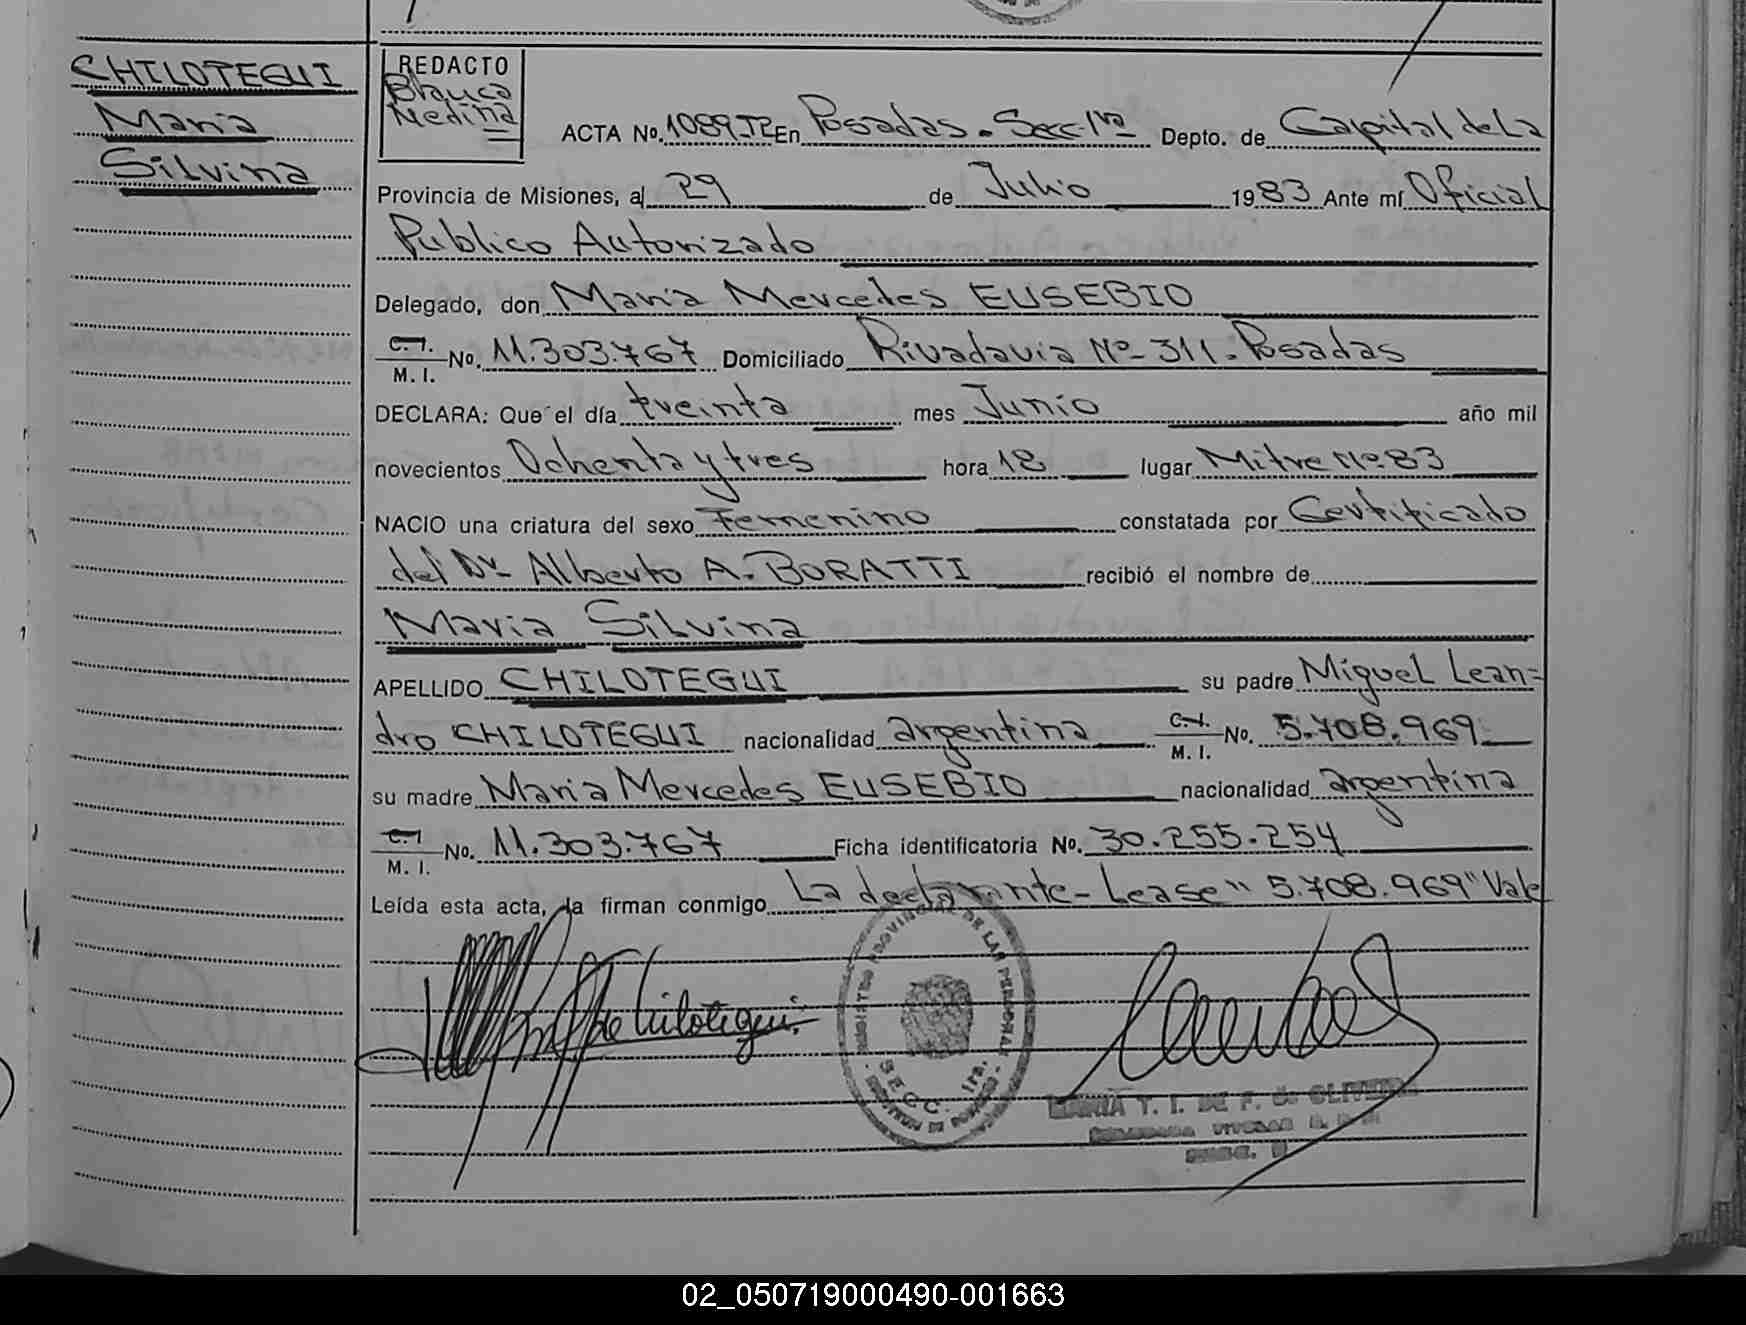 CHILOTEGUI
Maria
Silvina
REDACTO
Blanca
Medina
ACTA No. 1089 En Posadas - Sec. 1ra Depto. de Capital de la
Provincia de Misiones, al 29 de Julio 1983 Ante mí Oficial
Publico Autorizado
Delegado, don Maria Mercedes EUSEBIO
C.I.
M. I. No. 11.303.767 Domiciliado Rivadavia Nº 311 - Posadas
DECLARA: Que el día treinta mes Junio año mil
novecientos Ochenta y tres hora 18 lugar Mitre Nº 83
NACIO una criatura del sexo Femenino constatada por Certificado
del Dr Alberto A. BORATTI recibió el nombre de
Maria Silvina
APELLIDO CHILOTEGUI su padre Miguel Lean=
dro CHILOTEGUI nacionalidad argentina C.I. M. I. No. 5.708.969
su madre Maria Mercedes EUSEBIO nacionalidad argentina
C.I.
M. I. No. 11.303.767 Ficha identificatoria No. 30.255.254
Leída esta acta, la firman conmigo La declarante - Lease "5.708.969" Vale
de Chilotegui
REGISTRO PROVINCIAL DE LAS PERSONAS
SECC. 1ra.
MARIA T. I. DE F. DE OLIVERA
02_050719000490-001663